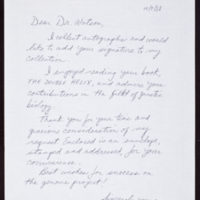 Dear Dr. Watson,
I collect autographs and would
like to add your signature to my
collection.
I enjoyed reading your book,
THE DOUBLE HELIX, and admire your
contributions in the field of genetic
biology.
Thank you for your time and
gracious consideration of my
request. Enclosed is an envelope,
stamped and addressed, for your
convenience.
Best wishes for success on
the genome project!
Sincerely yours,